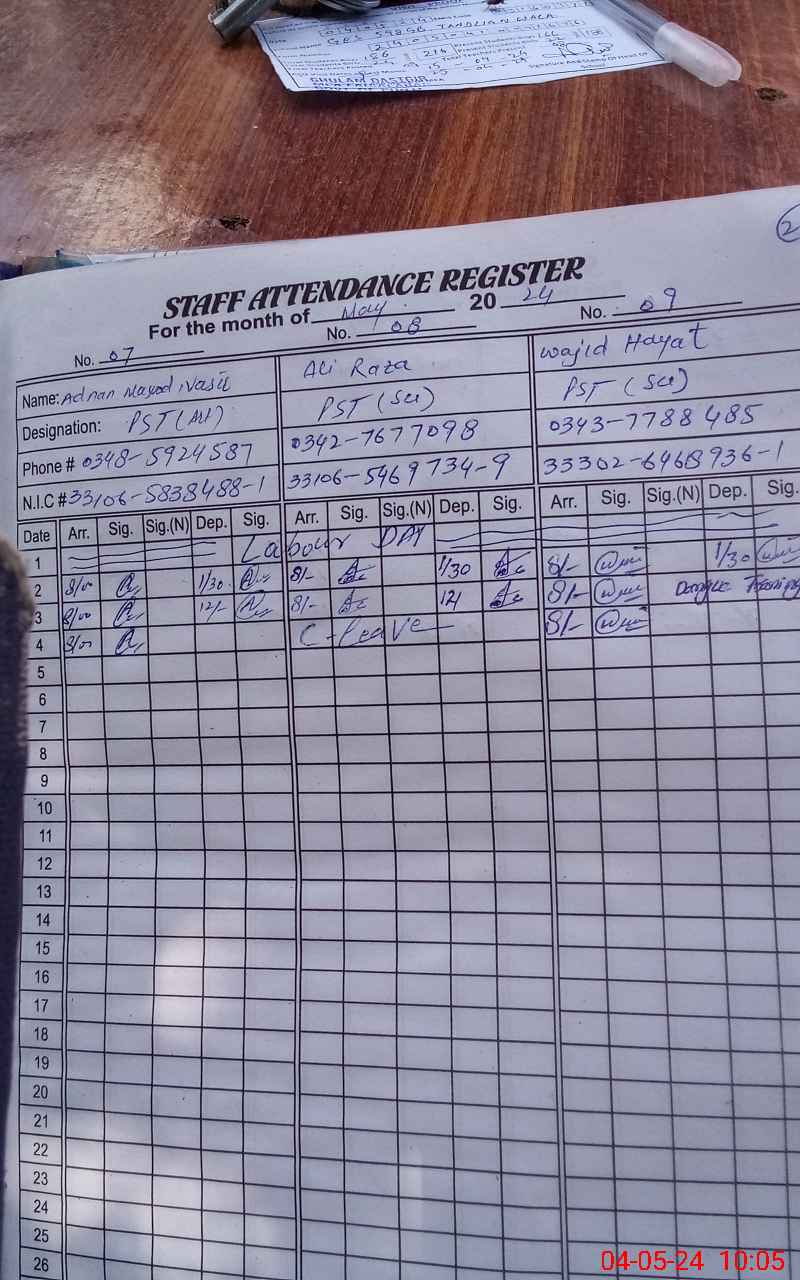 GES 598GB TANDLIAN WALA
GHULAM DASTGIR
Signature And Stamp Of Head Of
School
2
STAFF ATTENDANCE REGISTER
For the month of May 20 24
No. 07 No. 08 No. 09
Name: Adnan Ali Raza Wajid Hayat
Designation: PST (Art) PST (Sci) PST (Sci)
Phone # 0348-5924587 0342-7677098 0343-7788485
N.I.C # 33106-5838488-1 33106-5469734-9 33302-6468936-1
Date Arr. Sig. Sig.(N) Dep. Sig. Arr. Sig. Sig.(N) Dep. Sig. Arr. Sig. Sig.(N) Dep. Sig.
1 Labour DAY
2 8/00 1/30 8/- 1/30 8/- 1/30
3 8/00 12/- 8/- 12/ 8/- Dengue Training
4 8/00 C-leave 8/-
5
6
7
8
9
10
11
12
13
14
15
16
17
18
19
20
21
22
23
24
25
26
04-05-24 10:05